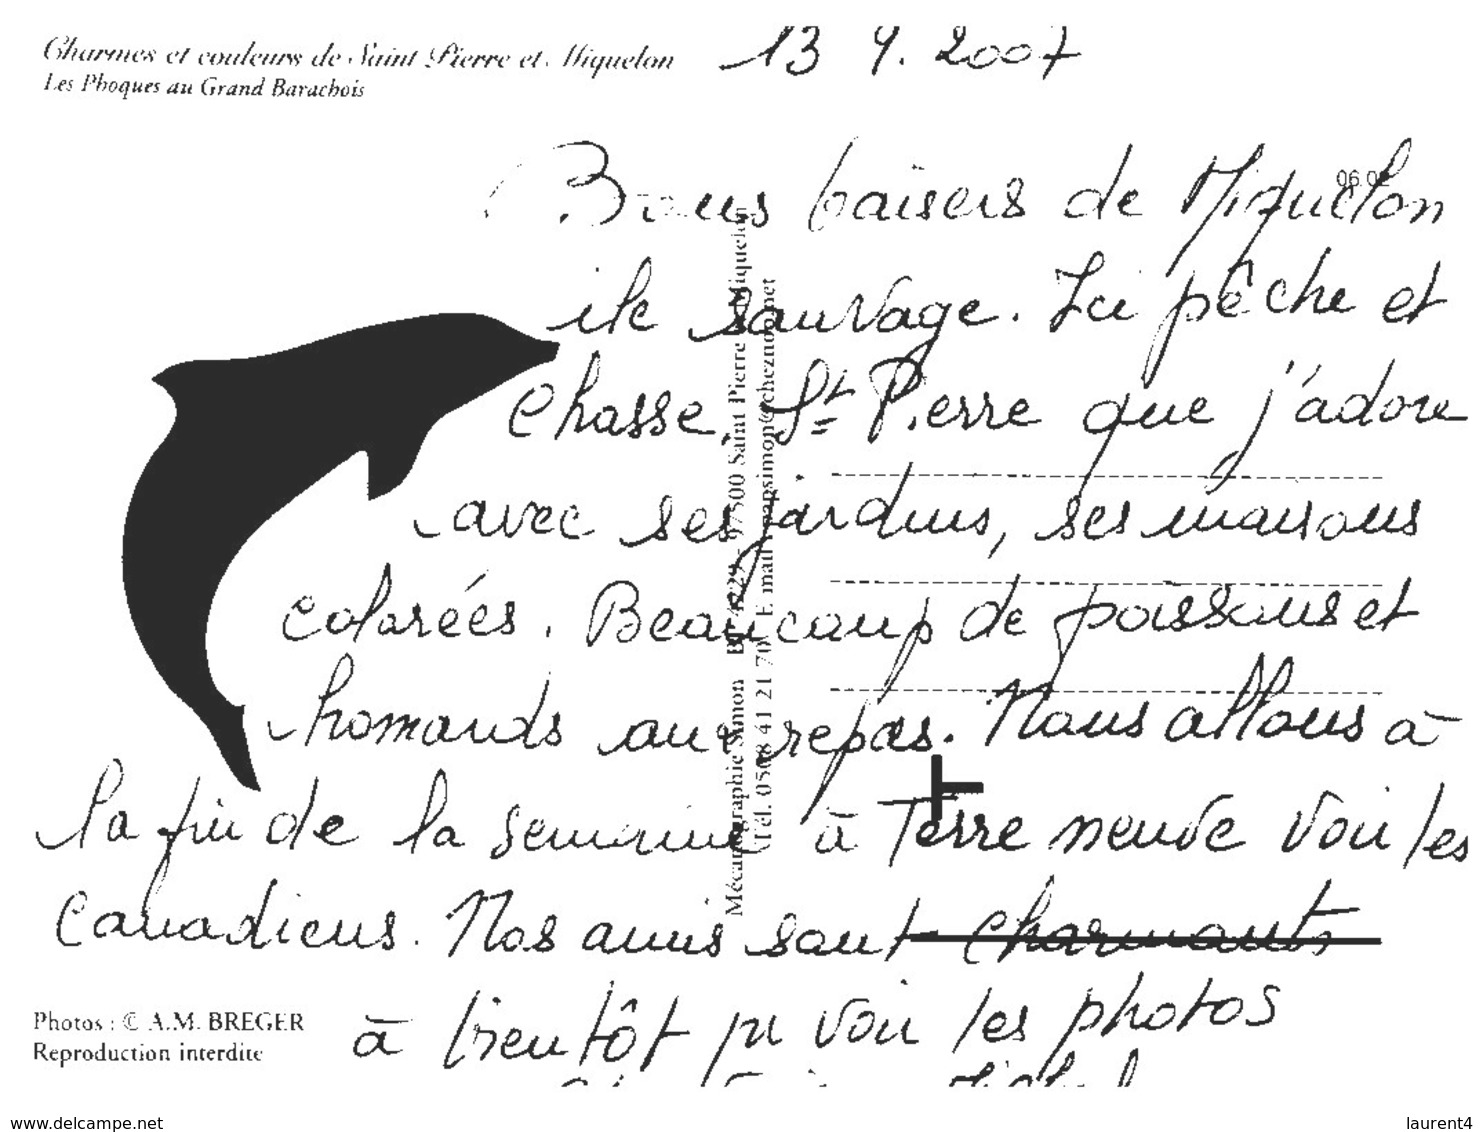 Charmes et couleurs de Saint Pierre et Miquelon
Les Phoques au Grand Barachois
13 9. 2007
06.0
Bons baisers de Miquelon
ile sauvage. Ici pêche et
chasse, St Pierre que j'adore
avec ses jardins, ses maisons
colorées. Beaucoup de poissons et
homards aux repas. Nous allons à
la fin de la semaine à Terre neuve voir les
Canadiens. Nos amis sont charmants
à bientôt pr voir les photos
Mécanographie Simon BP 4229 - 97500 Saint Pierre Miquelon
Tél. 0508 41 21 70 E mail
Photos : © A.M. BREGER
Reproduction interdite
www.delcampe.net
laurent4